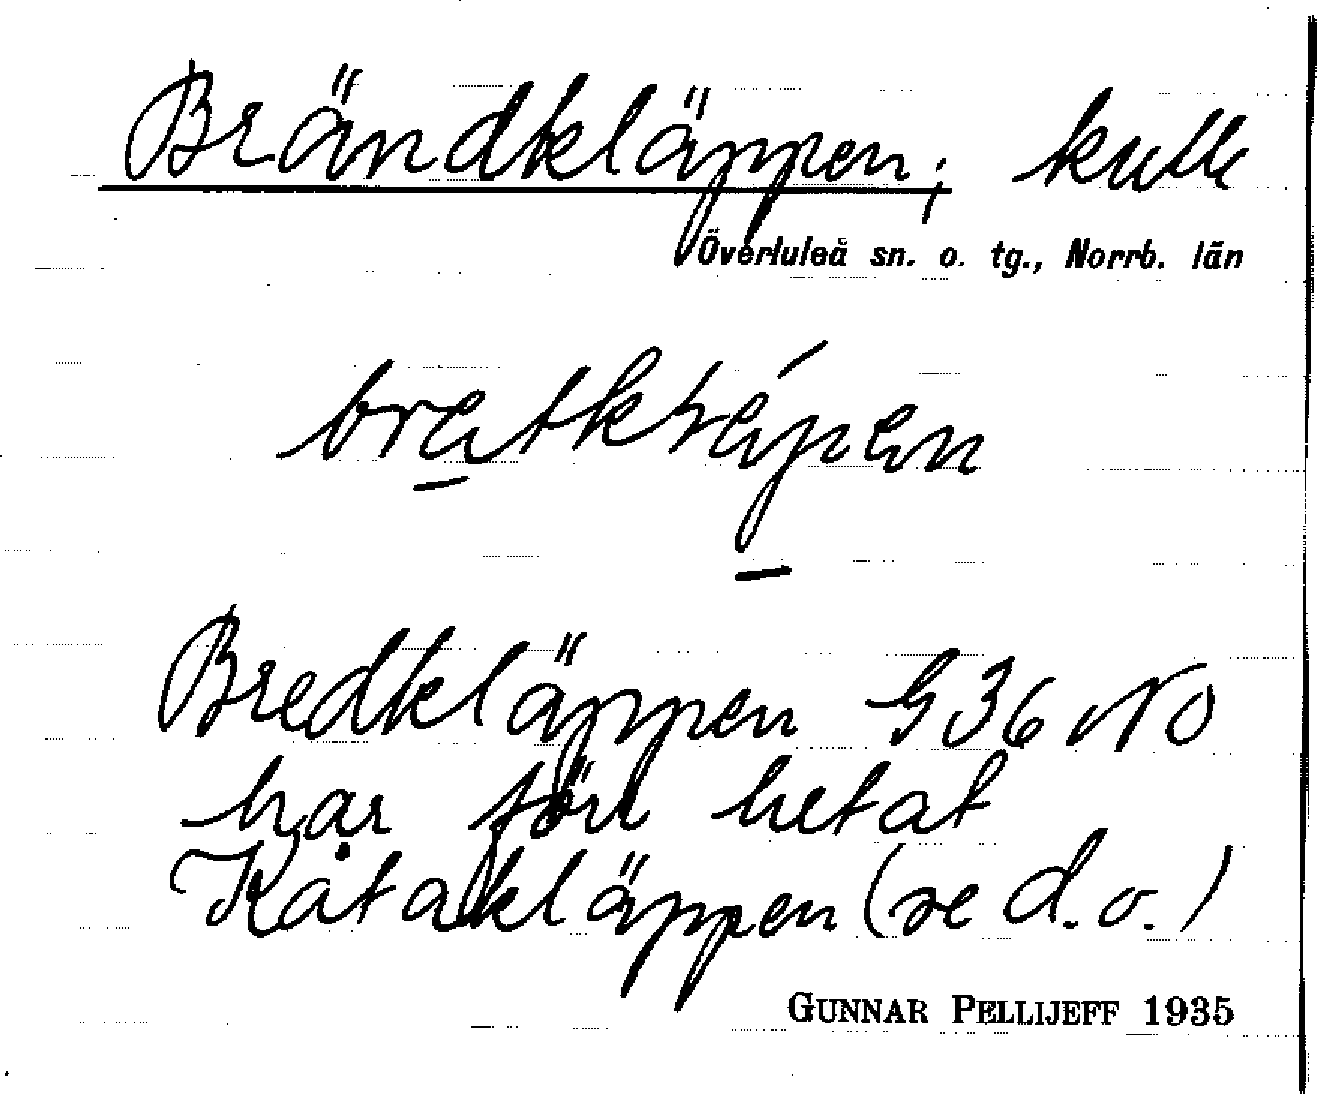 Brändkläppen; kulle
Överluleå sn. o. tg., Norrb. län
Bredkläppen G36 NO
har förr hetat
Kåtakläppen (se d.o.)
GUNNAR PELLIJEFF 1935